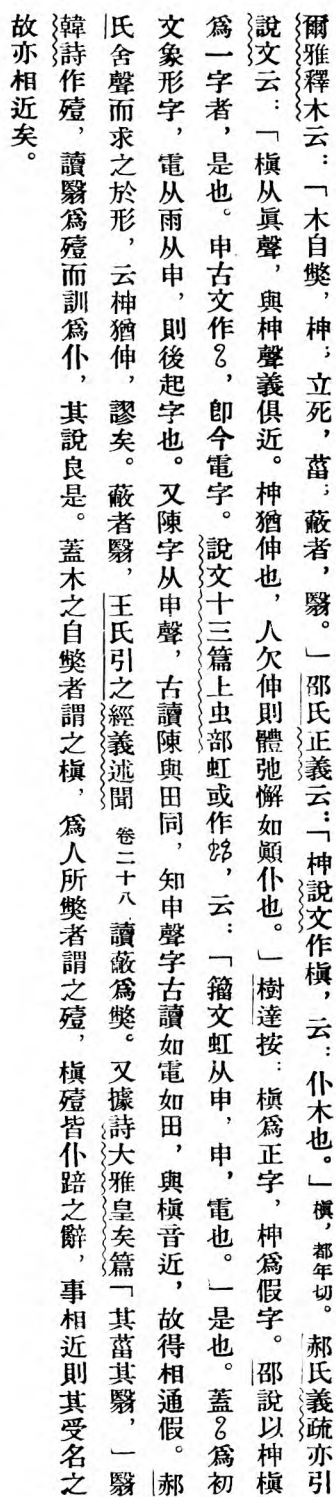 爾雅釋木云：「木自獘，柛；立死，菑；蔽者，翳。」邵氏正義云：「柛說文作槙，云：仆木也。」槙，都年切。郝氏義疏亦引
說文云：「槙从眞聲，與柛聲義俱近。柛猶伸也，人欠伸則體弛懈如顚仆也。」樹達按：槙爲正字，柛爲假字。邵說以柛槙
爲一字者，是也。申古文作，卽今電字。說文十三篇上虫部虹或作，云：「籀文虹从申，申，電也。」是也。蓋爲初
文象形字，電从雨从申，則後起字也。又陳字从申聲，古讀陳與田同，知申聲字古讀如電如田，與槙音近，故得相通假。郝
氏舍聲而求之於形，云柛猶伸，謬矣。蔽者翳，王氏引之經義述聞卷二十八讀蔽爲獘。又據詩大雅皇矣篇「其菑其翳，」翳
韓詩作殪，讀翳爲殪而訓爲仆，其說良是。蓋木之自獘者謂之槙，爲人所獘者謂之殪，槙殪皆仆踣之辭，事相近則其受名之
故亦相近矣。